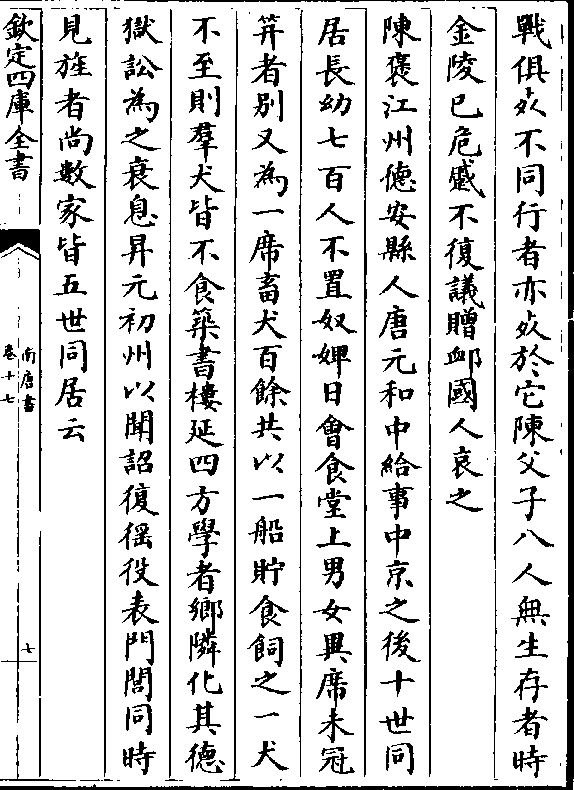 戰俱歿不同行者亦歿於它陳父子八人無生存者時
金陵已危蹙不復議贈䘏國人哀之
陳褒江州德安縣人唐元和中給事中京之後十世同
居長幼七百人不置奴婢日㑹食堂上男女異席未冠
笄者别又為一席畜犬百餘共以一船貯食飼之一犬
不至則羣犬皆不食築書樓延四方學者鄉隣化其德
獄訟為之衰息昇元初州以聞詔復徭役表門閭同時
見旌者尚數家皆五世同居云
欽定四庫全書
南唐書
卷十七
七